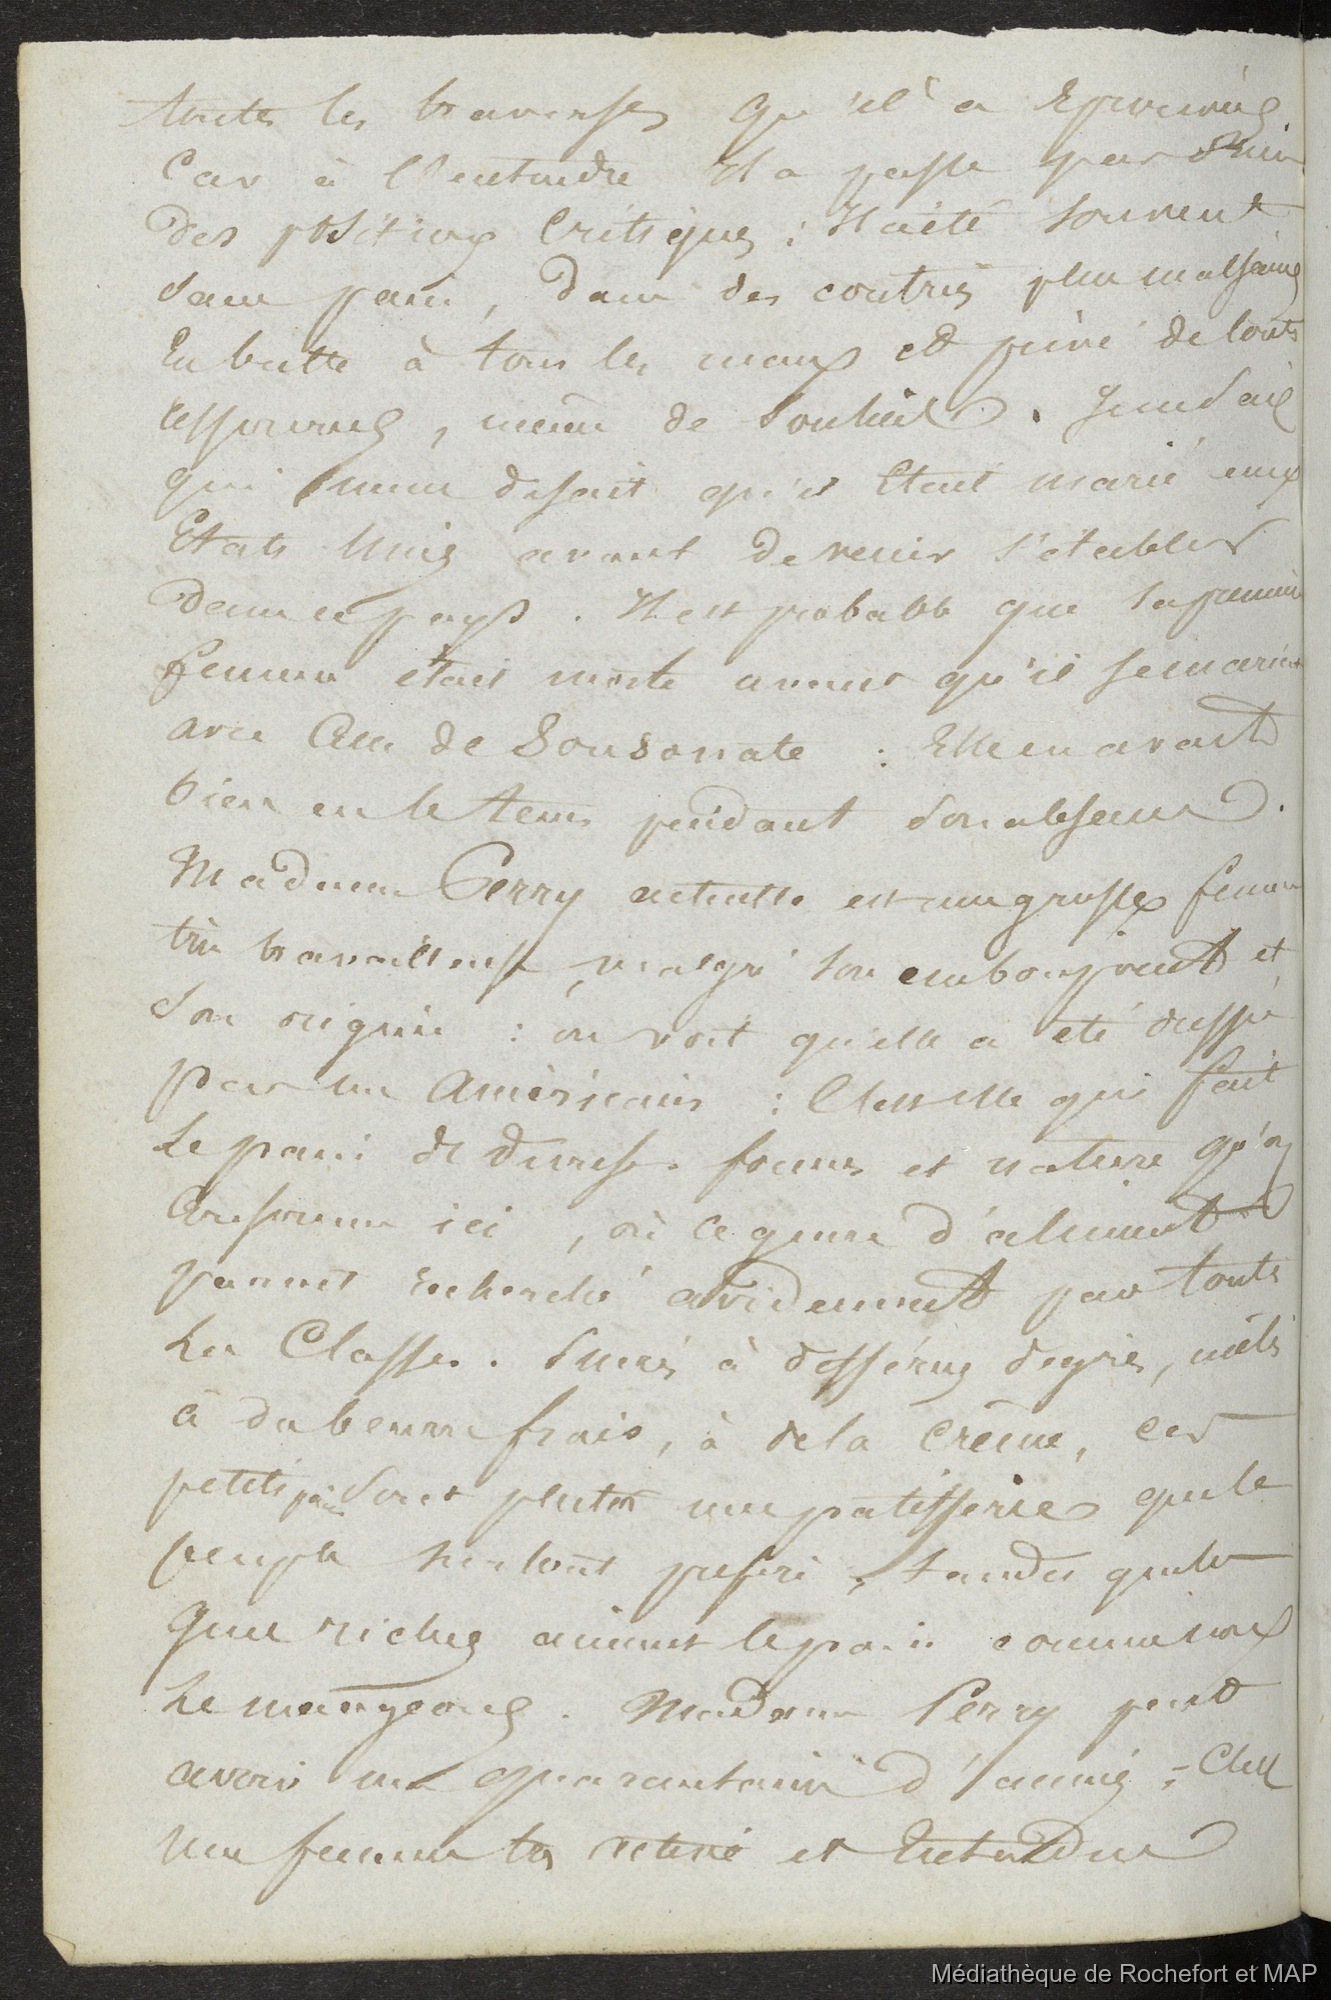 toutes les traverses qu'il a éprouvées
Car à l'entendre il a passé par
des positions critiques : Il a été souvent
sans pain, dans des contrées plus malsaines
En butte à tous les maux et privé de toutes
ressources, même de souliers. Gonsalès
qui nous disait qu'il était marié aux
Etats Unis avant de venir s'établir
dans ce pays. Il est probable que sa première
femme était morte avant qu'il se mariat
avec Celle de Sonsonate : Elle en avait
bien eu le tems pendant son absence.
Madame Perry actuelle est une grosse femme
très travailleuse, malgré son embonpoint et
son origine : on voit qu'elle a été dressée
par un Américain : C'est elle qui fait
Le pain de diverses formes et nature qu'on
Consomme ici, où ce genre d'aliment
parait recherché avidemment par toutes
Les Classes. Sucrés à différens degrés, mêlés
à du beurre frais, à de la crême, ces
petits pains sont plutôt une patisserie que le
peuple surtout préfère, tandis que les
gens riches aiment le pain comme nous
Le mangeons. Madame Perry peut
avoir une quarantaine d'années ; C'est
une femme très retirée et Entendue